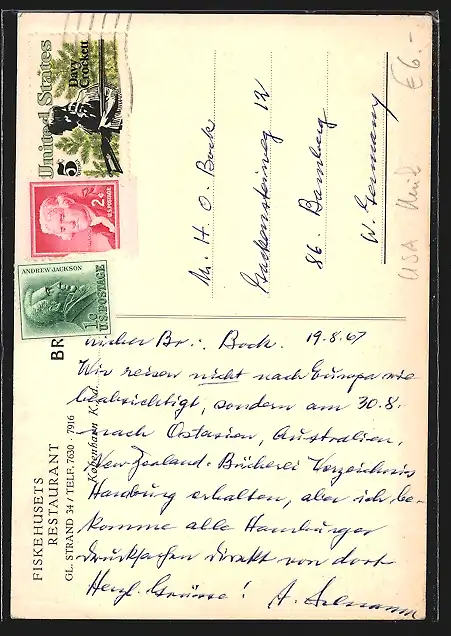 United States
Davy
Crockett
5c
2¢
U.S. POSTAGE
ANDREW JACKSON
1c
U.S. POSTAGE
Mr. H. O. Bock
12
86. Bamberg
W. Germany
USA
€6.-
BR
FISKEHUSETS
RESTAURANT
GL. STRAND 34 / TELF. 7630 · 7916
København K.
Br.: Bock. 19.8.67
Wir reisen nicht nach Europa wie
beabsichtigt, sondern am 30.8.
nach Ostasien, Australien,
New Zealand. Bücherei Verzeichnis
Hamburg erhalten, aber ich be-
komme alle Hamburger
Drucksachen direkt von dort
Herzl. Grüsse! A.